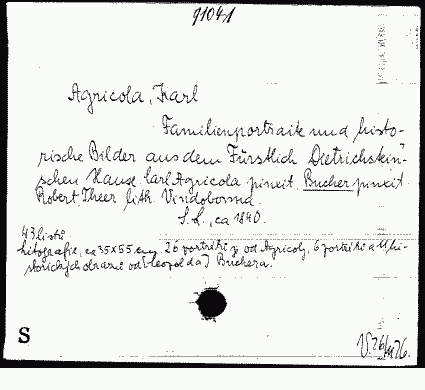 91041
Agricola, Karl
Familienportraite und histo-
rische Bilder aus dem Fürstlich Dietrichstein'-
schen Hause. Carl Agricola pinxit. Bucher pinxit
Robert Theer lith. Vindobonna.
S. L., ca 1840.
43 listů
litografie, ca 35x55 cm, 26 portrétů od Agricoly, 6 portrétů a 11 hi-
storických obrazů od [Leopolda] Buchera.
S